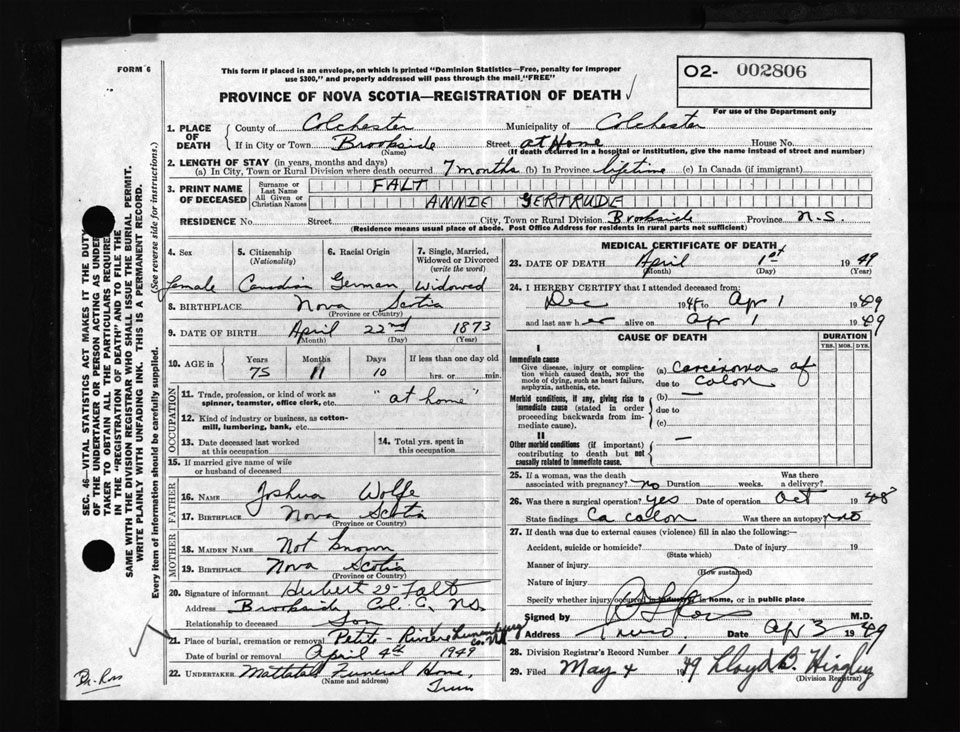 FORM 6
This form if placed in an envelope, on which is printed "Dominion Statistics—Free, penalty for improper
use $300," and properly addressed will pass through the mail "FREE"
02- 002806
PROVINCE OF NOVA SCOTIA—REGISTRATION OF DEATH
For use of the Department only
1. PLACE OF DEATH
County of Colchester Municipality of Colchester
If in City or Town Brookside Street at Home House No.
(Name) (If death occurred in a hospital or institution, give the name instead of street and number)
2. LENGTH OF STAY (in years, months and days)
(a) In City, Town or Rural Division where death occurred 7 months (b) In Province lifetime (c) In Canada (if immigrant)
3. PRINT NAME OF DECEASED
Surname or Last Name FALT
All Given or Christian Names ANNIE GERTRUDE
RESIDENCE No. Street City, Town or Rural Division Brookside Province N.S.
(Residence means usual place of abode. Post Office Address for residents in rural parts not sufficient)
4. Sex 5. Citizenship 6. Racial Origin 7. Single, Married,
(Nationality) Widowed or Divorced
(write the word)
female Canadian German Widowed
8. BIRTHPLACE Nova Scotia
(Province or Country)
9. DATE OF BIRTH April 22nd 1873
(Month) (Day) (Year)
10. AGE in Years Months Days If less than one day old
75 11 10 hrs. or min.
OCCUPATION
11. Trade, profession, or kind of work as "at home"
spinner, teamster, office clerk, etc.
12. Kind of industry or business, as cotton-
mill, lumbering, bank, etc.
13. Date deceased last worked 14. Total yrs. spent in
at this occupation this occupation
15. If married give name of wife
or husband of deceased
FATHER
16. NAME Joshua Wolfe
17. BIRTHPLACE Nova Scotia
(Province or Country)
MOTHER
18. MAIDEN NAME Not known
19. BIRTHPLACE Nova Scotia
(Province or Country)
20. Signature of informant Hubert Falt
Address Brookside, Col. C. N.S.
Relationship to deceased Son
21. Place of burial, cremation or removal Petite-Riviere Lunenburg Co. N.S.
Date of burial or removal April 4th 1949
22. UNDERTAKER Mattatall Funeral Home,
(Name and address) Truro
MEDICAL CERTIFICATE OF DEATH
23. DATE OF DEATH April 1st 1949
(Month) (Day) (Year)
24. I HEREBY CERTIFY that I attended deceased from:
Dec 1948 to Apr 1 1949
and last saw her alive on Apr 1 1949
CAUSE OF DEATH DURATION
YRS. MOS. DYS.
I
Immediate cause
Give disease, injury or complica-
tion which caused death, NOT the
mode of dying, such as heart failure,
asphyxia, asthenia, etc.
(a) carcinoma of
due to colon
Morbid conditions, if any, giving rise to
immediate cause (stated in order
proceeding backwards from im-
mediate cause).
(b) —
due to
(c)
II
Other morbid conditions (if important)
contributing to death but not
causally related to immediate cause.
—
25. If a woman, was the death Was there
associated with pregnancy? no Duration weeks. a delivery?
26. Was there a surgical operation? yes Date of operation Oct 1948
State findings Ca colon Was there an autopsy? no
27. If death was due to external causes (violence) fill in also the following:
Accident, suicide or homicide? Date of injury 19
(State which)
Manner of injury
(How sustained)
Nature of injury
Specify whether injury occurred in industry, in home, or in public place
Signed by M.D.
Address Truro. Date Apr 3 1949
28. Division Registrar's Record Number 1
29. Filed May 4 1949 Lloyd B. Hingley
(Division Registrar)
SEC. 46—VITAL STATISTICS ACT MAKES IT THE DUTY
OF THE UNDERTAKER OR PERSON ACTING AS UNDER-
TAKER TO OBTAIN ALL THE PARTICULARS REQUIRED
IN THE "REGISTRATION OF DEATH" AND TO FILE THE
SAME WITH THE DIVISION REGISTRAR WHO SHALL ISSUE THE BURIAL PERMIT.
WRITE PLAINLY WITH UNFADING INK. THIS IS A PERMANENT RECORD.
Every item of information should be carefully supplied. (See reverse side for instructions.)
Dr. Ross